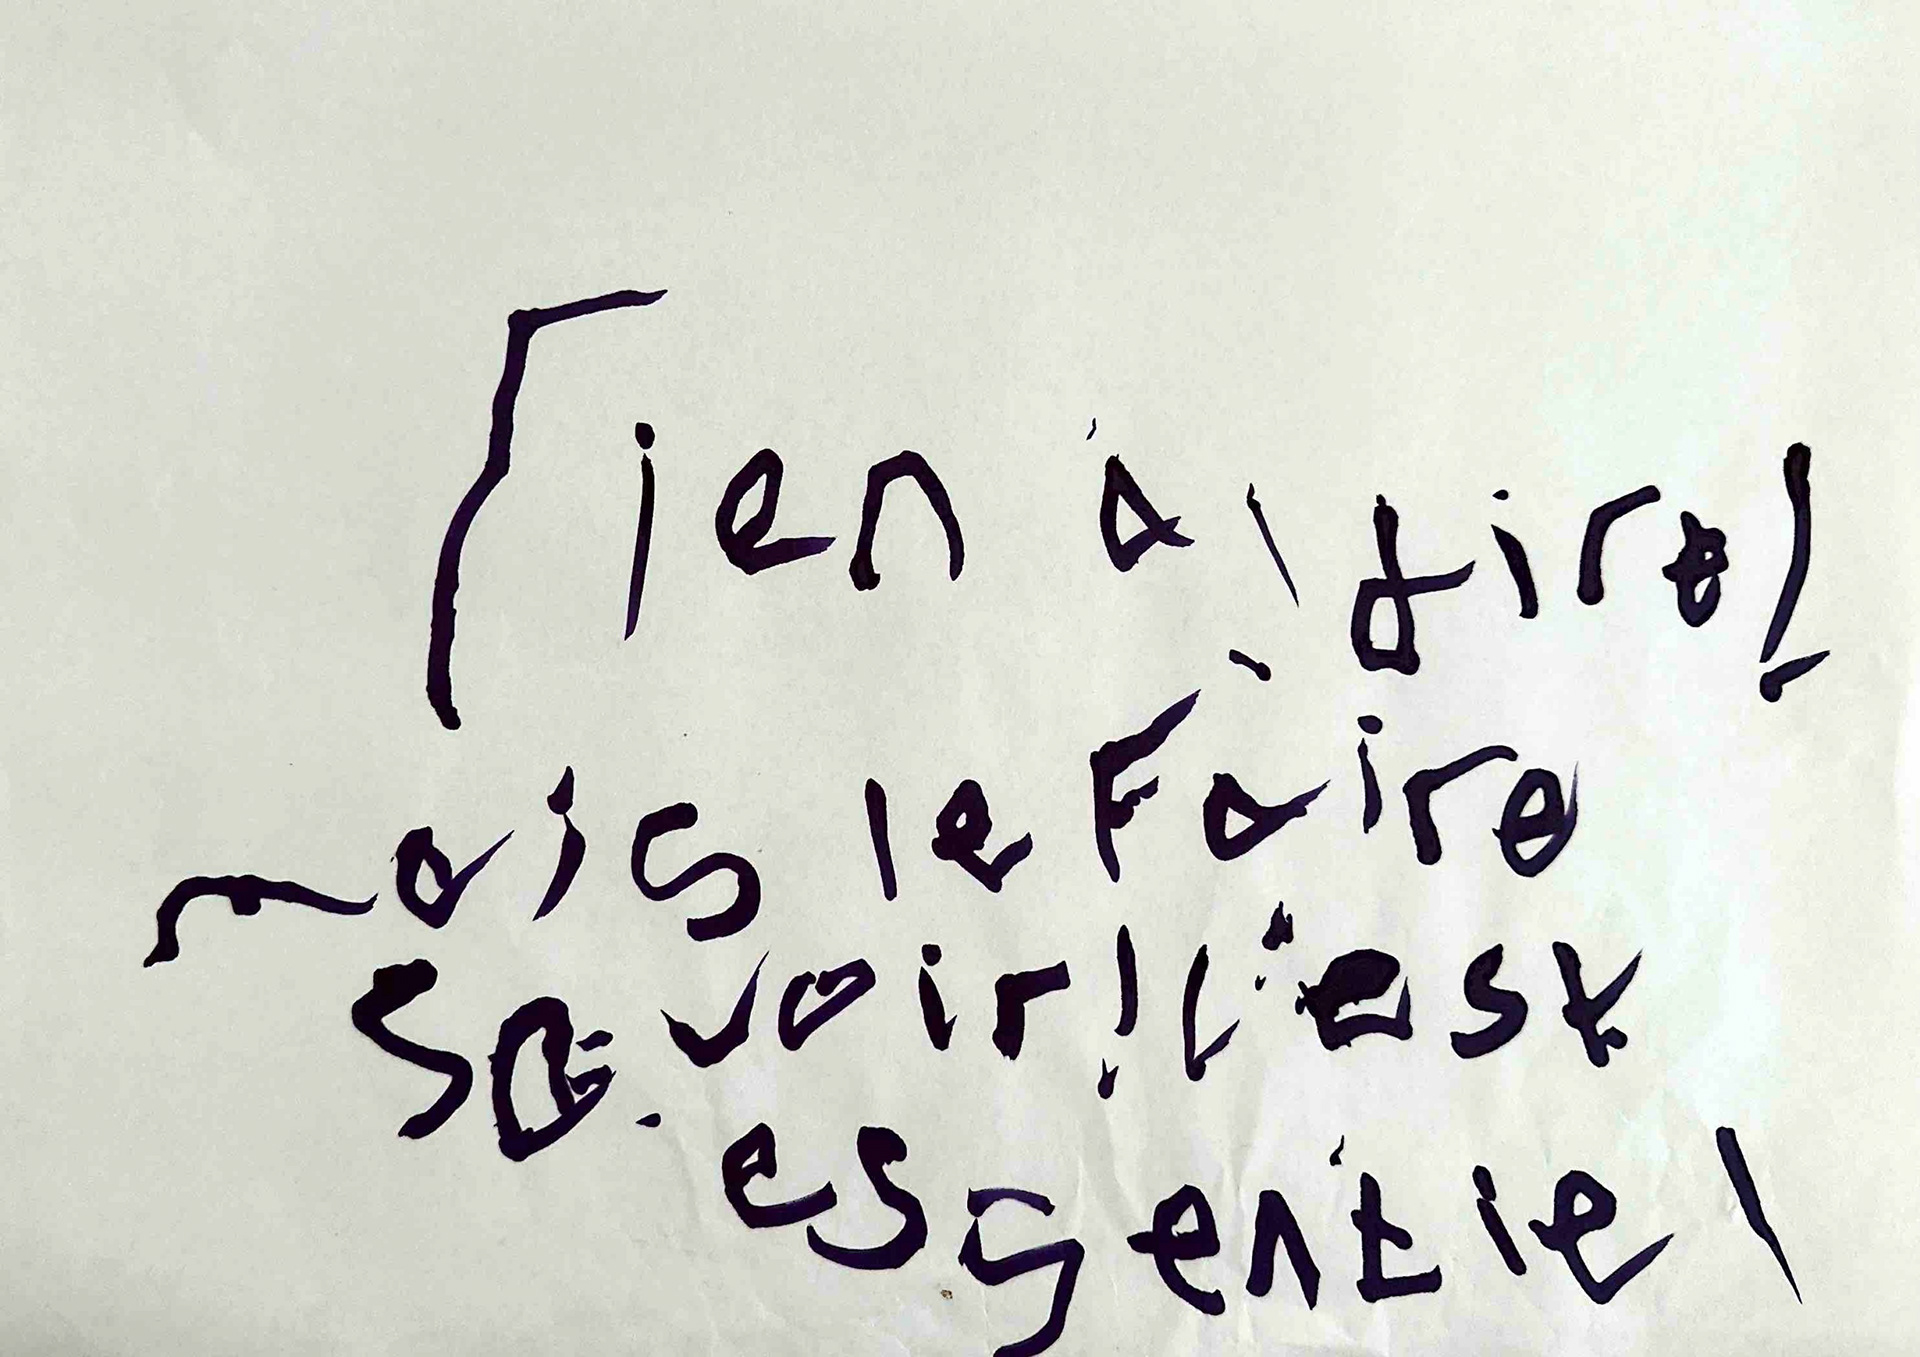 rien à dire!
mais le Faire
savoir! c'est
essentiel